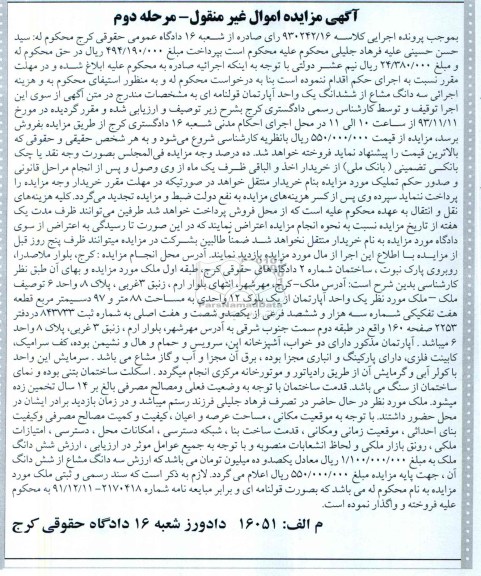 آگهی مزایده اموال غیر منقول- مرحله دوم
بموجب پرونده اجرایی کلاسه ۹۳۰۲۴۲/۱۶ رای صادره از شعبه ۱۶ دادگاه عمومی حقوقی کرج محکوم له: سید
حسن حسینی علیه فرهاد جلیلی محکوم علیه محکوم است بپرداخت مبلغ ۴۹۴/۱۹۰/۰۰۰ ریال در حق محکوم له
و مبلغ ۲۴/۳۸۰/۰۰۰ ریال نیم عشر دولتی با توجه به اینکه اجرائیه صادره به محکوم علیه ابلاغ شده و در مهلت
مقرر نسبت به اجرای حکم اقدام ننموده است بنا به درخواست محکوم له و به منظور استیفای محکوم به و هزینه
اجرائی سه دانگ مشاع از ششدانگ یک واحد آپارتمان قولنامه ای به مشخصات مندرج در متن آگهی از سوی این
اجرا توقیف و توسط کارشناس رسمی دادگستری کرج بشرح زیر توصیف و ارزیابی شده و مقرر گردیده در مورخ
۹۳/۱۱/۱۱ از ساعت ۱۰ الی ۱۱ در محل اجرای احکام مدنی شعبه ۱۶ دادگستری کرج از طریق مزایده بفروش
برسد، مزایده از قیمت ۵۵۰/۰۰۰/۰۰۰ ریال بانظریه کارشناسی شروع می‌شود و به هر شخص حقیقی و حقوقی که
بالاترین قیمت را پیشنهاد نماید فروخته خواهد شد. ده درصد وجه مزایده فی‌المجلس بصورت وجه نقد یا چک
بانکسی تضمینی ( بانک ملی) از خریدار اخذ و الباقی ظرف یک ماه از وی وصول و پس از انجام مراحل قانونی
و صدور حکم تملیک مورد مزایده بنام خریدار منتقل خواهد در صورتیکه در مهلت مقرر خریدار وجه مزایده را
پرداخت ننماید سپرده وی پس از کسر هزینه‌های مزایده به نفع دولت ضبط و مزایده تجدید می‌گردد. کلیه هزینه‌های
نقل و انتقال به عهده محکوم علیه است که از محل فروش پرداخت خواهد شد طرفین می‌توانند ظرف مدت یک
هفته از تاریخ مزایده نسبت به نحوه انجام مزایده اعتراض نمایند که در این صورت تا رسیدگی به اعتراض از سوی
دادگاه مورد مزایده به نام خریدار منتقل نخواهد شد ضمناً طالبین بشرکت در مزایده میتوانند ظرف پنج روز قبل
از مزایده با اطلاع این اجرا از مال مورد مزایده بازدید نمایند. آدرس محل انجام مزایده : کرج، بلوار ملاصدرا،
روبروی پارک نبوت ، ساختمان شماره ۲ دادگاه‌های حقوقی کرج. طبقه اول ملک مورد مزایده و بهای آن طبق نظر
کارشناسی بدین شرح است: آدرس ملک-کرج مهرشهر، انتهای بلوار ارم ، زنبق ۳غربی ، پلاک ۸ واحد ۶ توصیف
ملک – ملک مورد نظر یک واحد آپارتمان از یک بلوک ۱۲ واحدی به مساحت ۸۸ متر و ۹۷ دسیمتر مربع قطعه
هفت تفکیکی شماره سه هزار و ششصد فرعی از یکصدو شصت و هفت اصلی به شماره ثبت ۸۴۳۷۳۳ دردفتر
۲۲۵۳ صفحه ۱۶۰ واقع در طبقه دوم سمت جنوب شرقی به آدرس مهرشهر، بلوار ارم ، زنبق ۳ غربی، پلاک ۸ واحد
۶ میباشد . آپارتمان مذکور دارای دو خواب، آشپزخانه اپن، سرویس و حمام و هال و نشیمن بوده، کف سرامیک،
کابینت فلزی، دارای پارکینگ و انباری مجزا بوده ، برق آن مجزا و آب و گاز مشاع می باشد . سرمایش این واحد
با کولر آبی و گرمایش آن از طریق رادیاتور و موتورخانه مرکزی انجام میگردد . اسکلت ساختمان بتنی بوده و نمای
ساختمان از سنگ می باشد. قدمت ساختمان با توجه به وضعیت فعلی ومصالح مصرفی بالغ بر ۱۴ سال تخمین زده
میشود. ملک مورد نظر در حال حاضر در تصرف فرهاد جلیلی فرزند رستم میباشد و در زمان بازدید برادر ایشان در
محل حضور داشتند. با توجه به موقعیت مکانی ، مساحت عرصه و اعیان، کیفیت و کمیت مصالح مصرفی وکیفیت
بنای احداثی ، موقعیت زمانی ومکانی ، قدمت ساخت بنا ، شبکه دسترسی ، امکانات محل ، دسترسی ، امتیازات
ملکی ، رونق بازار ملکی و لحاظ انشعابات منصوبه و با توجه به جمیع عوامل موثر در ارزیابی ، ارزش شش دانگ
ملک به مبلغ ۱/۱۰۰/۰۰۰/۰۰۰ ریال معادل یکصدو ده میلیون تومان می باشد که ارزش سه دانگ مشاع از شش دانگ
آن ، جهت پایه مزایده مبلغ ۵۵۰/۰۰۰/۰۰۰ ریال اعلام می گردد. لازم به ذکر است که سند رسمی و ثبتی ملک مورد
مزایده به نام محکوم له می باشد که بصورت قولنامه ای و برابر مبایعه نامه شماره ۲۱۷۰۴۱۸-۹۱/۱۲/۱۱ به محکوم
علیه فروخته و واگذار نموده است.
م الف: ۱۶۰۵۱ دادورز شعبه ۱۶ دادگاه حقوقی کرج